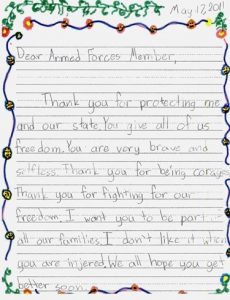 May 17, 2011
Dear Armed Forces Member,
Thank you for protecting me
and our state. You give all of us
freedom. You are very brave and
selfless. Thank you for being
Thank you for fighting for our
freedom. I want you to be part of
all our families. I don't like it when
you are injered. We all hope you get
better soon.